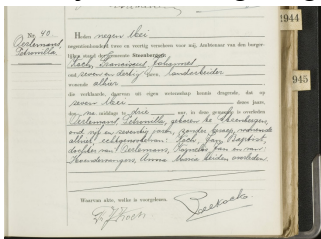 No. 40.
Oerlemans,
Petronilla
Heden negen Mei
negentienhonderd twee en veertig verscheen voor mij, Ambtenaar van den burger-
lijken stand der gemeente Steenbergen:
Koch, Franciscus Johannes
oud zeven en dertig jaren, landarbeider
wonende alhier
die verklaarde, daarvan uit eigen wetenschap kennis dragende, dat op
zeven Mei dezes jaars,
des na middags te drie uur, in deze gemeente is overleden
Oerlemans, Petronilla, geboren te Steenbergen,
oud en zeventig jaren, zonder beroep, wonende
alhier, echtgenoote van Koch, Jan Baptist,
dochter van Oerlemans, en van
Anna Maria beiden overleden.
Waarvan akte, welke is voorgelezen.
Koch
1944
945